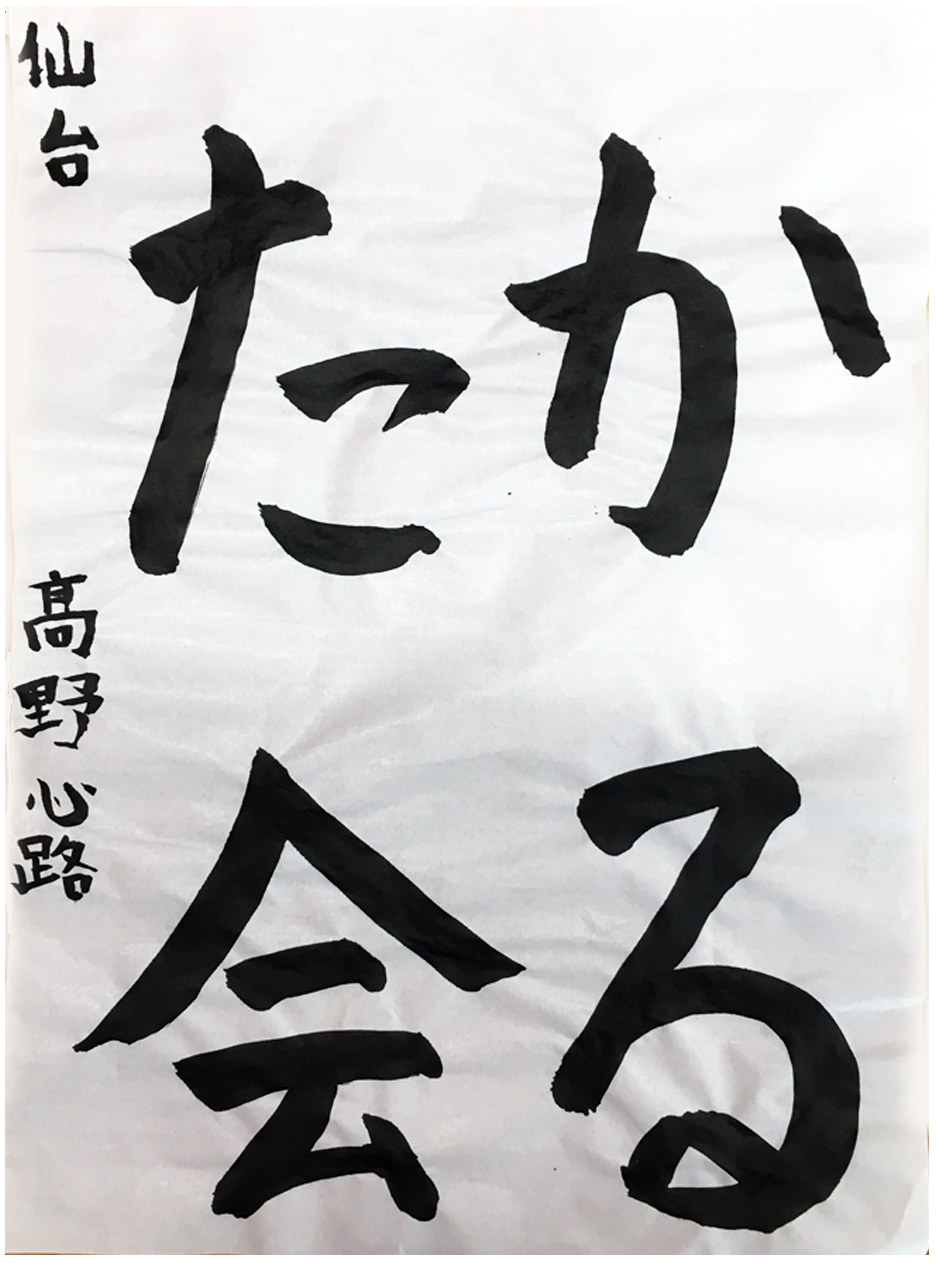 かる
た会
仙台 髙野心路